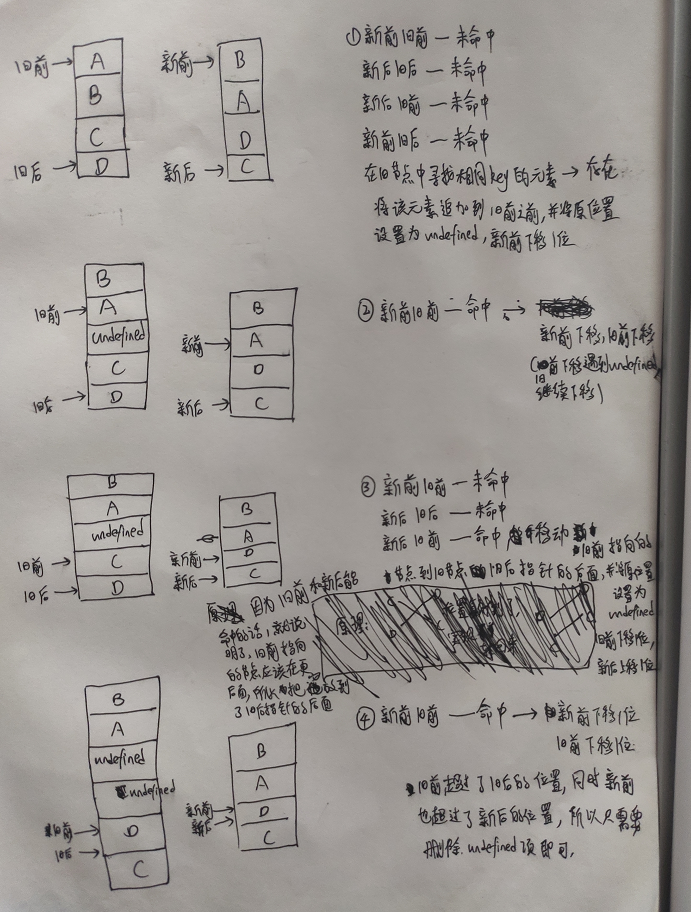 旧前 A
B
C
旧后 D
新前 B
A
D
新后 C
①新前旧前 — 未命中
新后旧后 — 未命中
新后旧前 — 未命中
新前旧后 — 未命中
在旧节点中寻找相同key的元素 → 存在
将该元素追加到旧前之前,并将原位置
设置为undefined,新前下移1位
B
旧前 A
undefined
C
旧后 D
B
新前 A
D
新后 C
②新前旧前 — 命中 →
新前下移,旧前下移
(旧前下移遇到undefined
继续下移)
B
A
undefined
旧前 C
旧后 D
B
A
新前 D
新后 C
③新前旧前 — 未命中
新后旧后 — 未命中
新后旧前 — 命中 移动 旧前指向的
节点到旧节点 旧后指针的后面,并将原位置
设置为
undefined
旧前下移1位,
新后上移1位
因为旧前和新后能
命中的话,就说
明了,旧前指向
的节点应该在更
后面,所以把 放到
了旧后指针的后面
原理:
B
A
undefined
undefined
旧前 D
旧后
C
B
A
新前 D
新后
C
④新前旧前 — 命中 → 新前下移1位
旧前下移1位
旧前超过了旧后的位置,同时新前
也超过了新后的位置,所以只需要
删除undefined项即可.